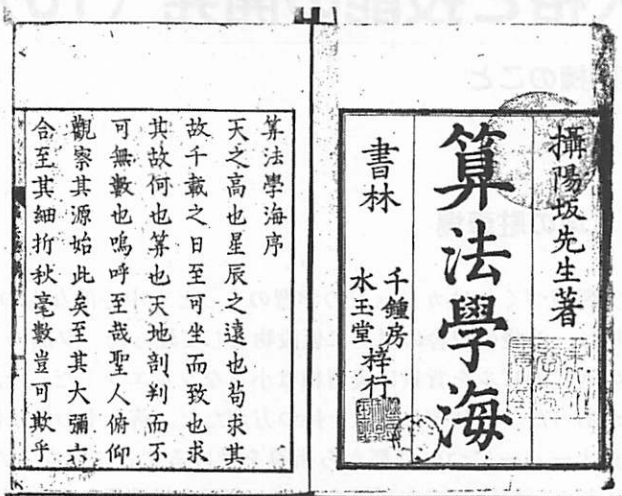 攝陽坂先生著
算法學海
書林
千鐘房
水玉堂
梓行
算法學海序
天之高也星辰之遠也苟求其
故千載之日至可坐而致也求
其故何也算也天地剖判而不
可無數也嗚呼至哉聖人俯仰
觀察其源始此矣至其大彌六
合至其細折秋毫數豈可欺乎